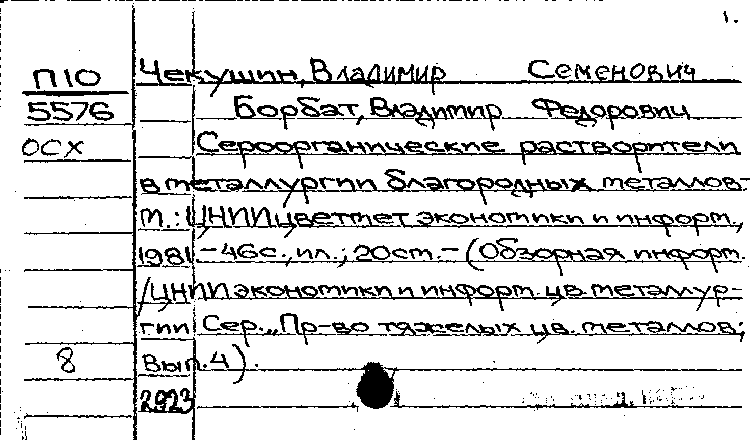 1.
П10 Чекушин, Владимир Семенович
5576 Борбат, Владимир Федорович
ОСХ Сероорганические растворители
в металлургии благородных металлов.-
М.: ЦНИИцветмет экономики и информ.,
1981 - 46с., ил.; 20см. - (Обзорная информ.
/ЦНИИ экономики и информ. цв. металлур-
гии Сер. „Пр-во тяжелых цв. металлов;
8 Вып. 4).
2923